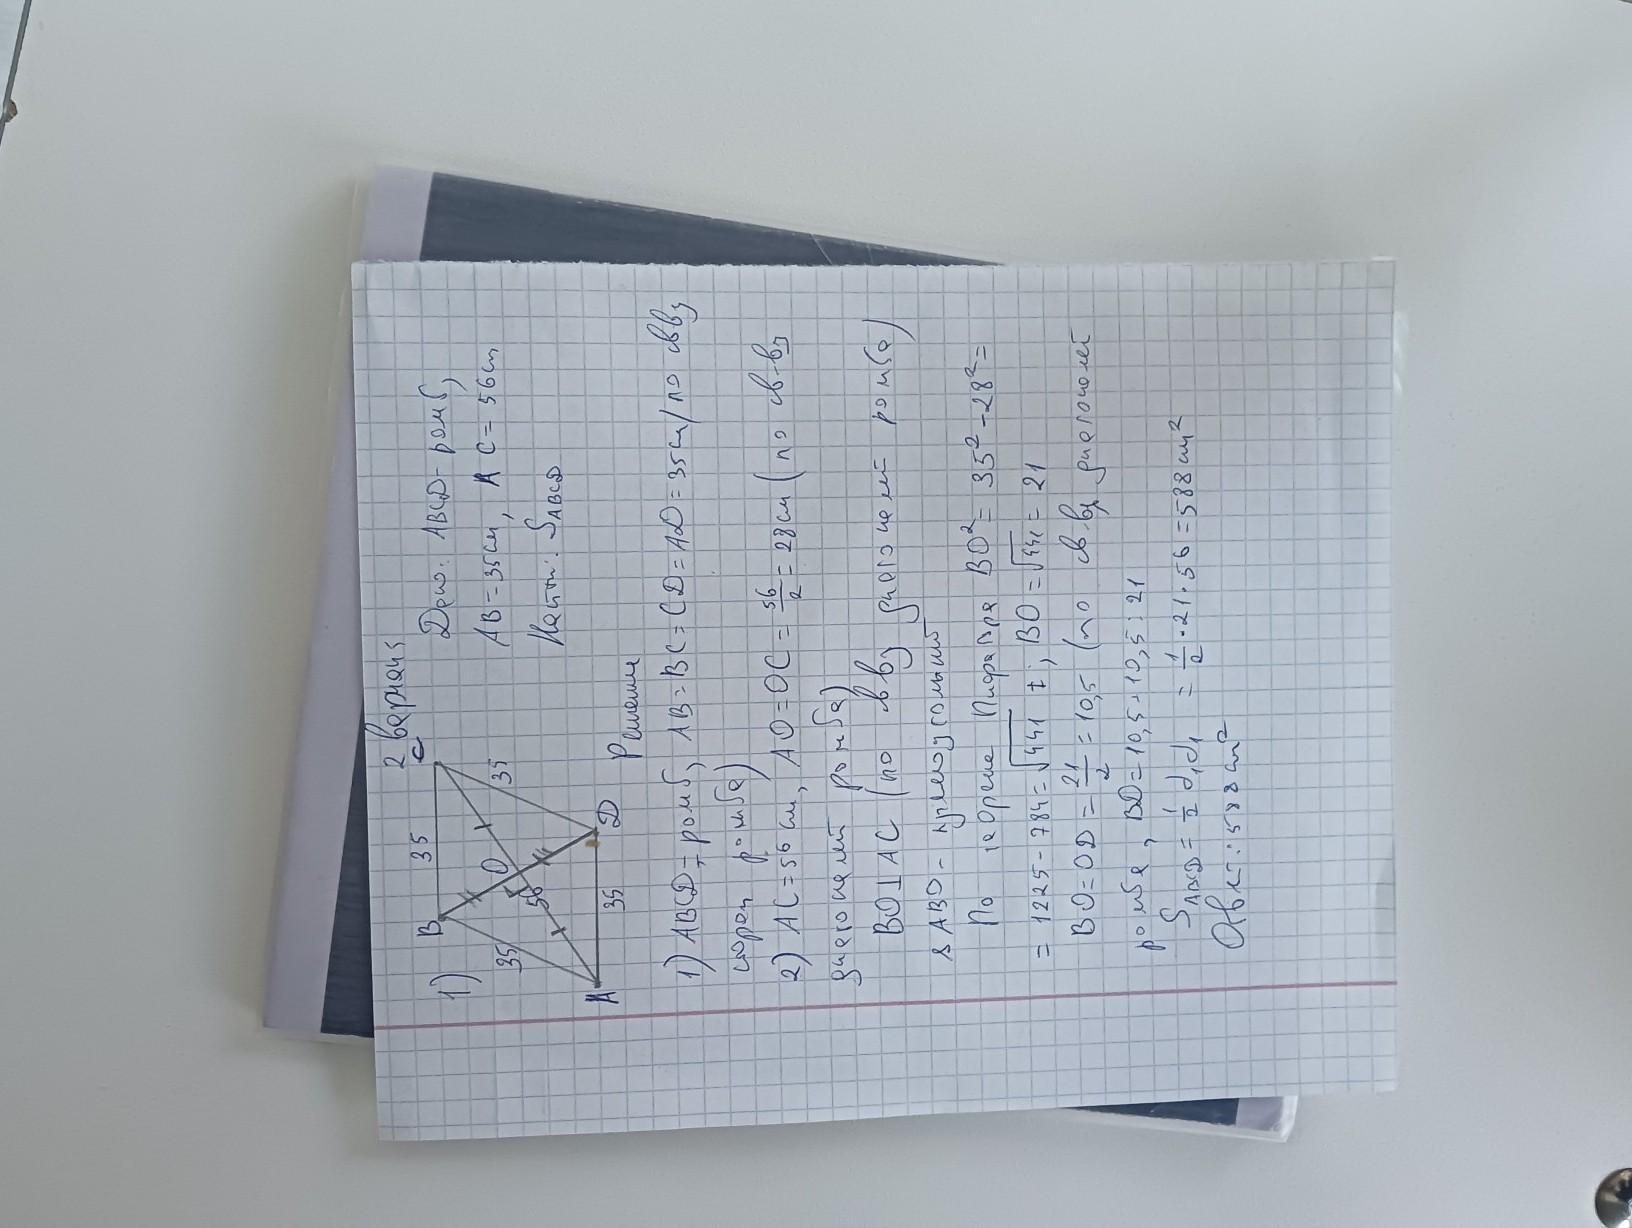 2 вариант
1)
B 35 C
35 O 35
56
A 35 D
Дано: ABCD - ромб,
AB = 35см, AC = 56см
Найти: S_ABCD
Решение
1) ABCD = ромб, AB = BC = CD = AD = 35см (по св-ву
сторон ромба)
2) AC = 56 см, AO = OC = 56/2 = 28см (по св-ву
диагоналей ромба)
BO ⊥ AC (по св-ву диагоналей ромба)
ABO -
По теореме Пифагора BO² = 35² - 28² =
= 1225 - 784 = √441 ; BO = √441 = 21
BO = OD = 21/2 = 10,5 (по св-ву диагоналей
ромба, BD = 10,5 + 10,5 = 21
S_ABCD = 1/2 d₁d₁ = 1/2 · 21 · 56 = 588 см²
Ответ: 588 см²